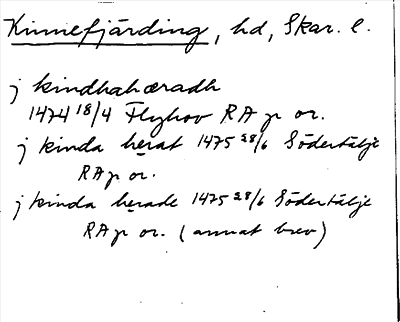 Kinnefjärding, hd, Skar. l.
j kindhahæradh
1474 18/4 Flyhov RAp or.
j kinda herat 1475 28/6 Södertälje
RAp or.
j kinda herade 1475 28/6 Södertälje
RAp or. (annat brev)